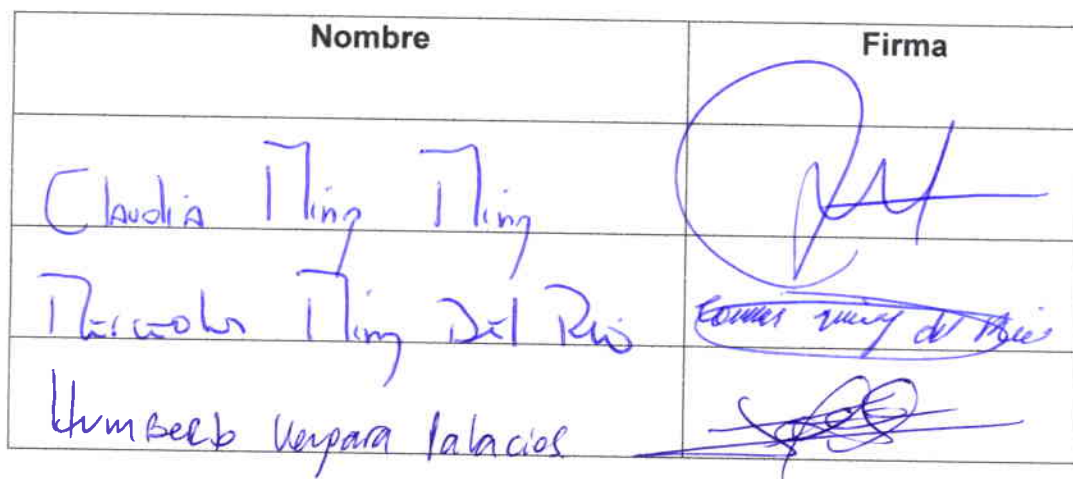 Nombre Firma
Claudia Ming Ming
Mercedes Ming Del Rio
Ming del Rio
Humberto Vergara Palacios